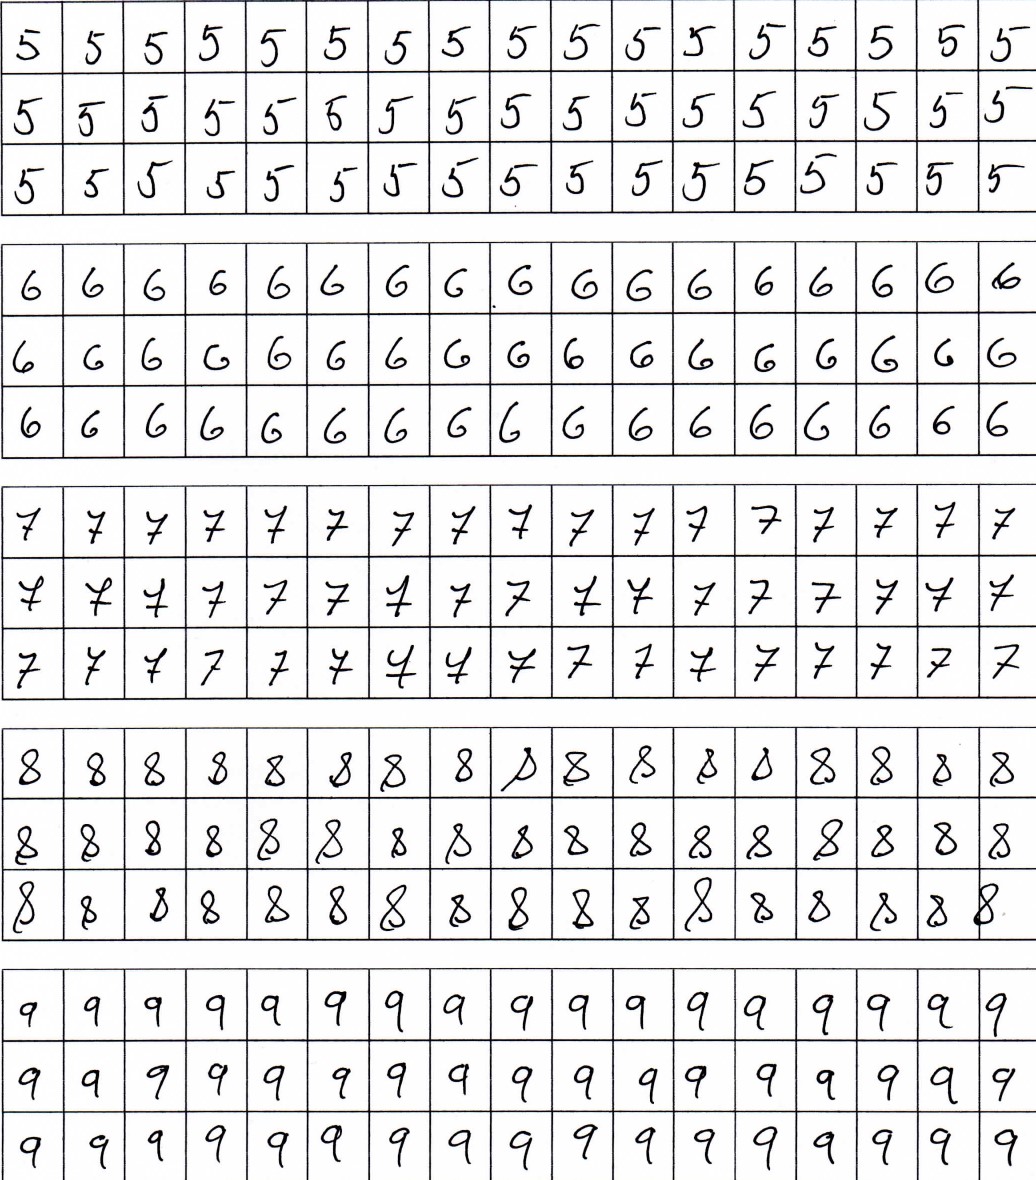 5 5 5 5 5 5 5 5 5 5 5 5 5 5 5 5 5
5 5 5 5 5 5 5 5 5 5 5 5 5 5 5 5 5
5 5 5 5 5 5 5 5 5 5 5 5 5 5 5 5 5
6 6 6 6 6 6 6 6 6 6 6 6 6 6 6 6 6
6 6 6 6 6 6 6 6 6 6 6 6 6 6 6 6 6
6 6 6 6 6 6 6 6 6 6 6 6 6 6 6 6 6
7 7 7 7 7 7 7 7 7 7 7 7 7 7 7 7 7
7 7 7 7 7 7 7 7 7 7 7 7 7 7 7 7 7
7 7 7 7 7 7 7 7 7 7 7 7 7 7 7 7 7
8 8 8 8 8 8 8 8 8 8 8 8 8 8 8 8 8
8 8 8 8 8 8 8 8 8 8 8 8 8 8 8 8 8
8 8 8 8 8 8 8 8 8 8 8 8 8 8 8 8 8
9 9 9 9 9 9 9 9 9 9 9 9 9 9 9 9 9
9 9 9 9 9 9 9 9 9 9 9 9 9 9 9 9 9
9 9 9 9 9 9 9 9 9 9 9 9 9 9 9 9 9